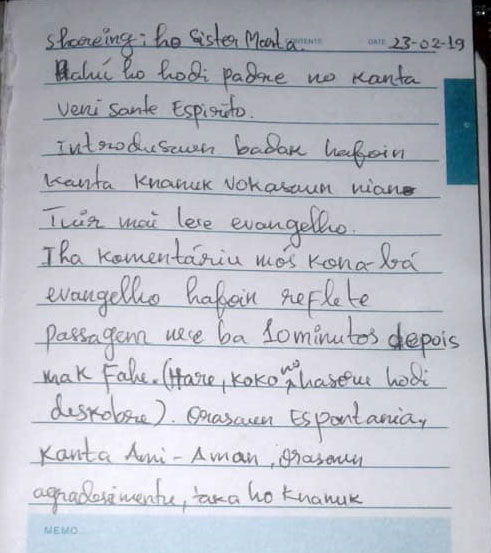 shareing: ho Sister Marta. CONTENTS DATE 23-02-19
Hahú ho hodi padre no Kanta
veni sante Espirito.
introdusaun badak hafoin
Kanta Knanuk vokasaun nian
Tuir mai lese evangelho.
Iha Komentáriu mós Kona-bá
evangelho hafoin reflete
passagem nee ba 10 minutos depois
mak Fahe. (Hare, Koko no hasoru hodi
deskobre). Orasaun Espontania,
Kanta Ami-Aman, Orasaun
agradesimentu, taka ho Knanuk
MEMO